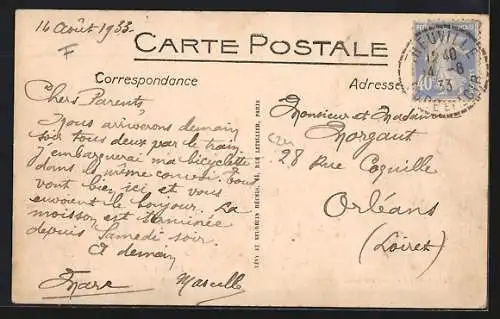 14 Août 1933
CARTE POSTALE
Correspondance
Adresse
Chers Parents
Nous arriverons demain
soir tous deux par le train
j'embarquerai ma bicyclette
dans le même convoi. Tous
vont bien ici et vous
envoient le bonjour. La
moisson est terminée
depuis Samedi soir.
A demain
Marc Marcelle
LÉVY ET NEURDEIN RÉUNIS, 44, RUE LETELLIER, PARIS
Monsieur et Madame
Morgant
28 Rue Coquille
Orléans
(Loiret)
NEUVILLE
12 40
14 -8
33
40c